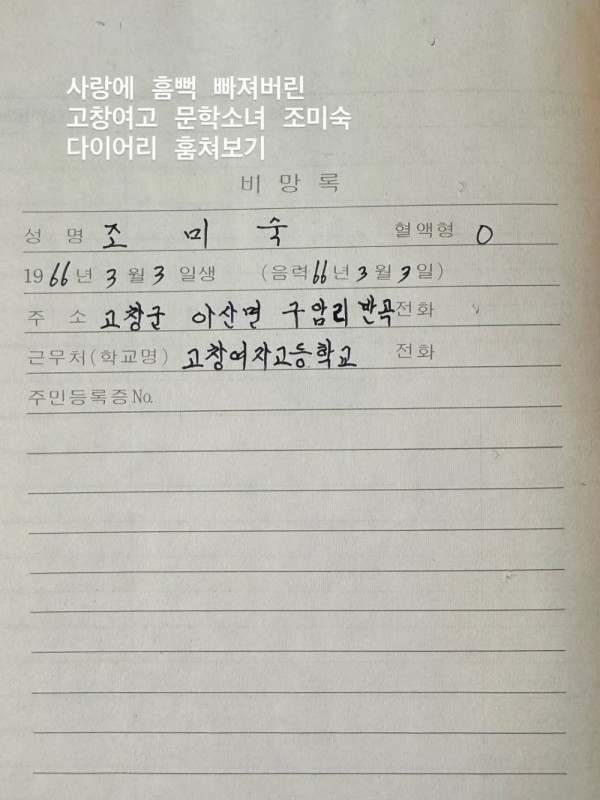 사랑에 흠뻑 빠져버린
고창여고 문학소녀 조미숙
다이어리 훔쳐보기
비망록
성 명 조 미 숙 혈액형 O
1966년 3월 3일생 (음력66년3월3일)
주 소 고창군 아산면 구암리 반곡 전화
근무처(학교명) 고창여자고등학교 전화
주민등록증No.